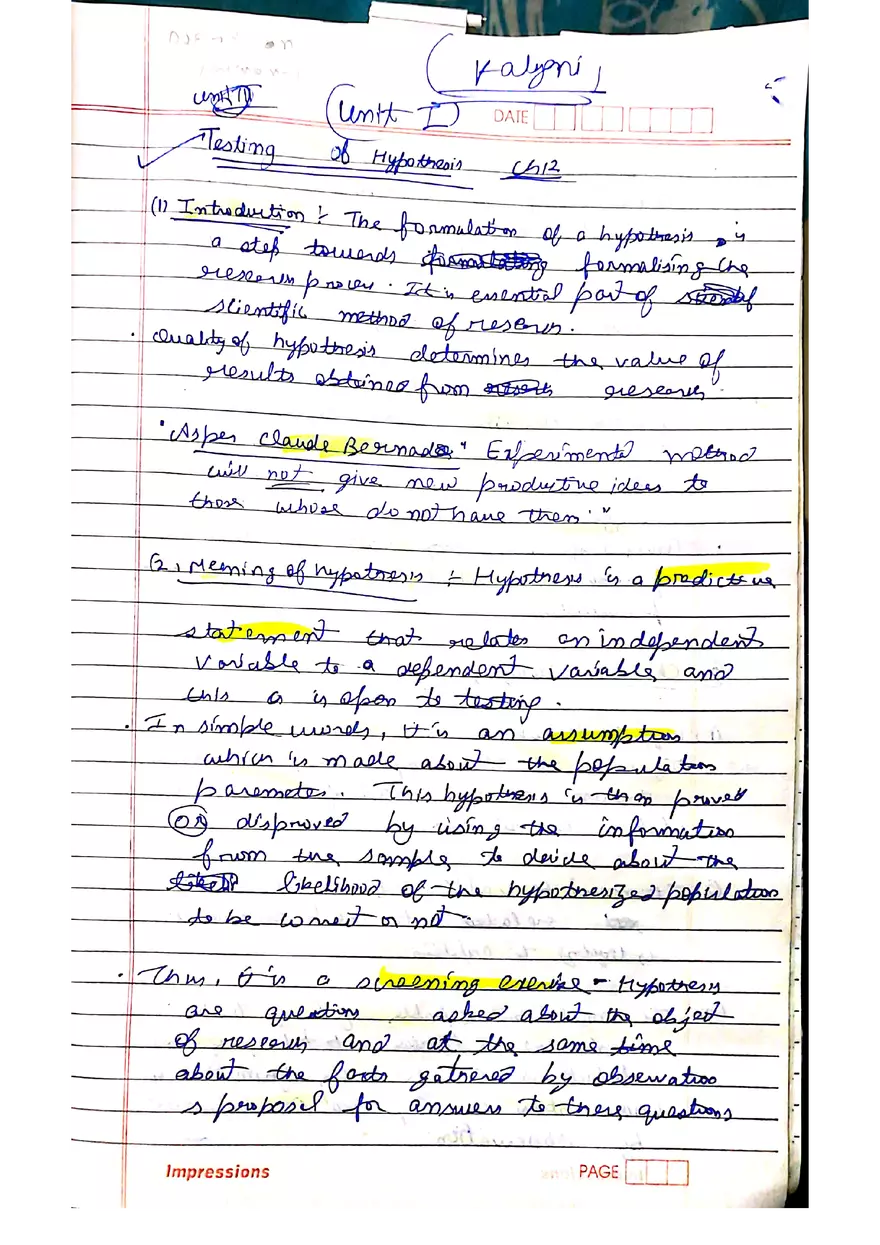 Kalyani
Unit IV
(Unit-I) DATE
Testing of Hypothesis Ch12
(1) Introduction :- The formulation of a hypothesis is
a step towards formalising the
research process. It is essential part of
scientific method of research.
. Quality of hypothesis determines the value of
results obtained from research.
"As per Claude Bernad " Experimental method
will not give new productive ideas to
those whose do not have them."
(2) Meaning of hypothesis :- Hypothesis is a predictive
statement that relates an independent
variable to a dependent variable and
this a is open to testing.
. In simple words, it is an assumption
which is made about the population
parameter. This hypothesis is then proved
OR disproved by using the information
from the sample, to decide about the
likelihood of the hypothesized population
to be correct or not.
. Thus, it is a screening exercise - Hypothesis
are questions asked about the object
of research and at the same time
about the facts gathered by observation
s proposal for answers to these questions
Impressions PAGE